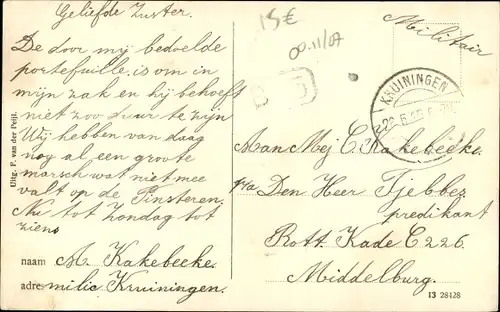 Geliefde Zuster.
De door my bedoelde
portefuille, is om in
mijn zak en hij behoeft
niet zoo duur te zijn
Wij hebben van daag
nog al een groote
marsch wat niet mee
valt op de Pinsteren.
Nu tot Zondag tot
ziens
naam A. Kakebeeke.
adres milic. Kruiningen.
Uitg. F. van der Peijl.
15€
00.11/07
Militair
KRUININGEN
Aan Mej C. Kakebeeke.
p/a Den Heer Tjebbes
predikant
Rott Kade C 226.
Middelburg.
13 28428